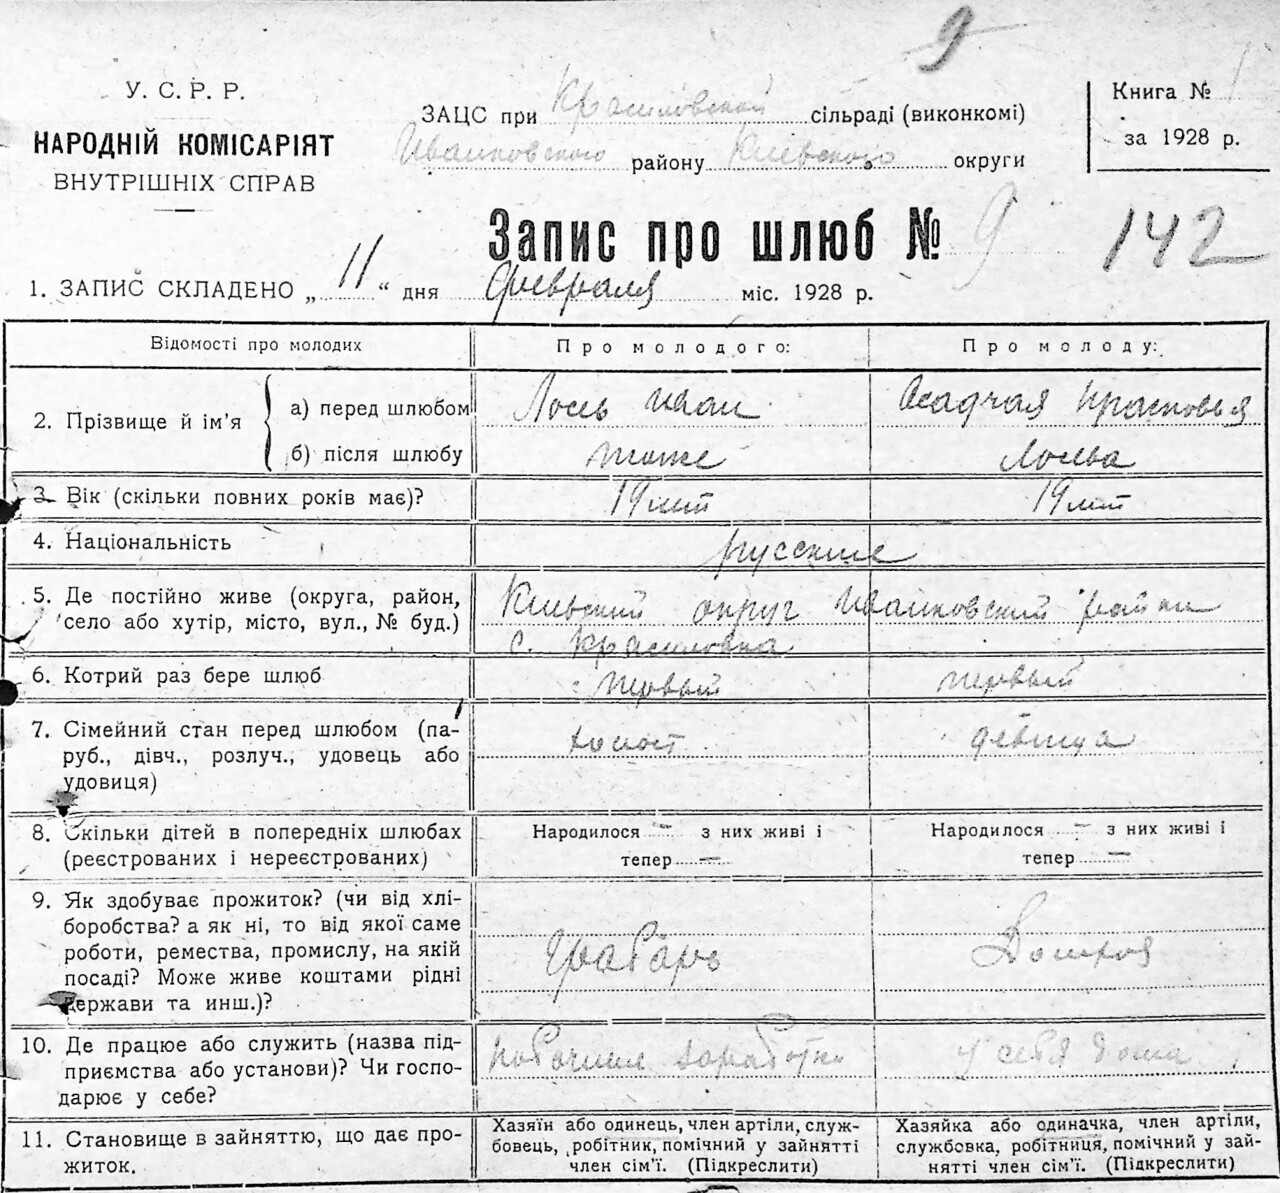 9
У. С. Р. Р.
НАРОДНІЙ КОМІСАРІЯТ
ВНУТРІШНІХ СПРАВ
ЗАЦС при Красиловской сільраді (виконкомі)
Иванковского району Киевского округи
Книга № 1
за 1928 р.
Запис про шлюб № 9
142
1. ЗАПИС СКЛАДЕНО „ 11 “ дня февраля міс. 1928 р.
Відомості про молодих
Про молодого:
Про молоду:
2. Прізвище й ім'я
а) перед шлюбом
Лось Иван
Осадчая Прасковья
б) після шлюбу
тоже
Лосева
3. Вік (скільки повних років має)?
19 лет
19 лет
4. Національність
русские
5. Де постійно живе (округа, район,
село або хутір, місто, вул., № буд.)
Киевский округ Иванковский район
с. Красиловка
6. Котрий раз бере шлюб
первый
первый
7. Сімейний стан перед шлюбом (па-
руб., дівч., розлуч., удовець або
удовиця)
холост
девица
8. Скільки дітей в попередніх шлюбах
(реєстрованих і нереєстрованих)
Народилося — з них живі і
тепер —
Народилося — з них живі і
тепер —
9. Як здобуває прожиток? (чи від хлі-
боробства? а як ні, то від якої саме
роботи, ремества, промислу, на якій
посаді? Може живе коштами рідні
держави та инш.)?
Грабарь
10. Де працює або служить (назва під-
приємства або установи)? Чи госпо-
дарює у себе?
у себя дома
11. Становище в зайняттю, що дає про-
житок.
Хазяїн або одинець, член артіли, служ-
бовець, робітник, помічний у зайнятті
член сім'ї. (Підкреслити)
Хазяйка або одиначка, член артіли,
службовка, робітниця, помічний у зай-
нятті член сім'ї. (Підкреслити)